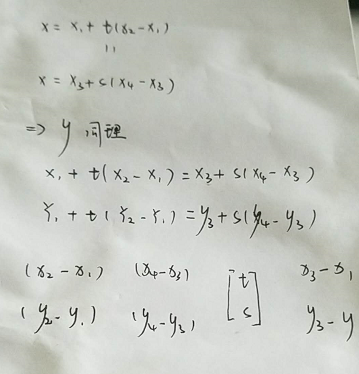 x = x₁ + t(x₂ - x₁)
||
x = x₃ + s(x₄ - x₃)
=> y 同理
x₁ + t(x₂ - x₁) = x₃ + s(x₄ - x₃)
Y₁ + t(Y₂ - Y₁) = y₃ + s(y₄ - y₃)
(x₂ - x₁) (x₄ - x₃) [t x₃ - x₁
(y₂ - y₁) (y₄ - y₃) s] y₃ - y